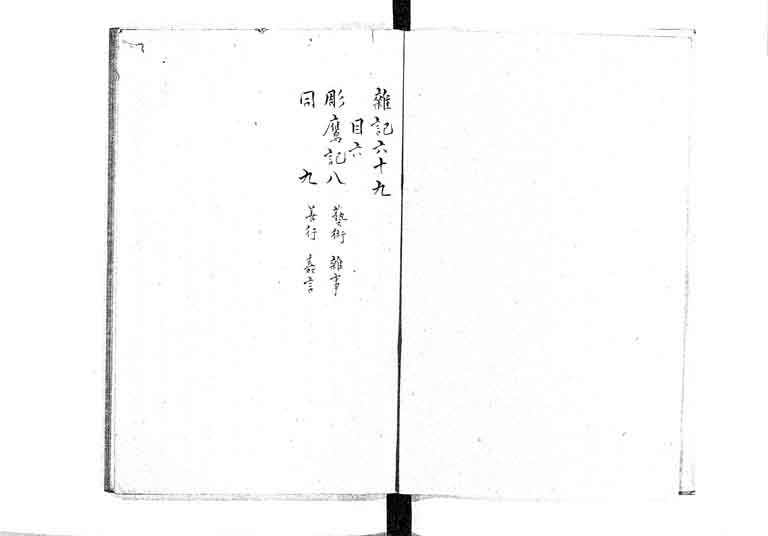 雜記六十九
目六
彫鷹記八 藝術 雜事
同 九 善行 嘉言